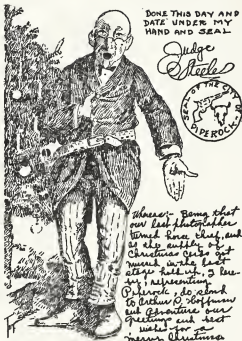 DONE THIS DAY AND
DATE UNDER MY
HAND AND SEAL
Judge
Steele
SEAL OF THE CITY
PIPEROCK
Whereas:- Being that
our last photographer
turned horse thief, and
as the supply of
Christmas cards got
mussed in the last
stage hold up, I here-
by, representing
Piperock, do send
to Arthur S. Hoffman
and Adventure our
greetings and best
wishes for a
merry Christmas